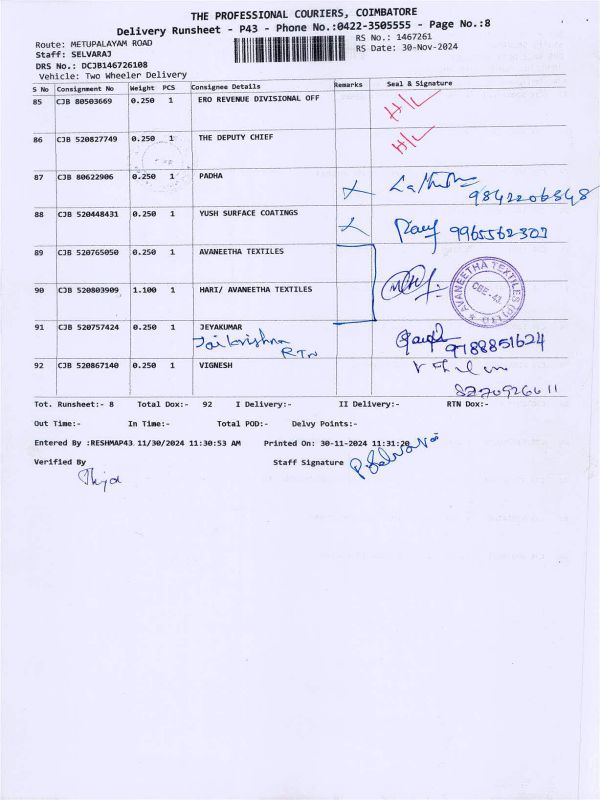 THE PROFESSIONAL COURIERS, COIMBATORE
Delivery Runsheet - P43 - Phone No.:0422-3505555 - Page No.:8
Route: METUPALAYAM ROAD
RS No.: 1467261
Staff: SELVARAJ
RS Date: 30-Nov-2024
DRS No.: DCJB146726108
Vehicle: Two Wheeler Delivery
S No Consignment No Weight PCS Consignee Details Remarks Seal & Signature
85 CJB 80503669 0.250 1 ERO REVENUE DIVISIONAL OFF H/L
86 CJB 520827749 0.250 1 THE DEPUTY CHIEF H/L
87 CJB 80622906 0.250 1 PADHA
9842206848
88 CJB 520448431 0.250 1 YUSH SURFACE COATINGS
9965562307
89 CJB 520765050 0.250 1 AVANEETHA TEXTILES
90 CJB 520803909 1.100 1 HARI/ AVANEETHA TEXTILES
AVANEETHA TEXTILES (P) LTD
CBE-43
91 CJB 520757424 0.250 1 JEYAKUMAR
Jaikrishna
RTN
9788851624
92 CJB 520867140 0.250 1 VIGNESH
8220926611
Tot. Runsheet:- 8 Total Dox:- 92 I Delivery:- II Delivery:- RTN Dox:-
Out Time:- In Time:- Total POD:- Delvy Points:-
Entered By :RESHMAP43 11/30/2024 11:30:53 AM Printed On: 30-11-2024 11:31:20
Verified By Staff Signature